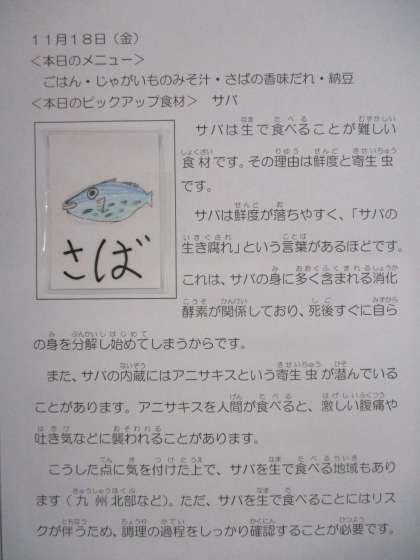 11月18日（金）
＜本日のメニュー＞
ごはん・じゃがいものみそ汁・さばの香味だれ・納豆
＜本日のピックアップ食材＞　サバ
さば
サバは生で食べることが難しい
食材です。その理由は鮮度と寄生虫
です。
サバは鮮度が落ちやすく、「サバの
生き腐れ」という言葉があるほどです。
これは、サバの身に多く含まれる消化
酵素が関係しており、死後すぐに自ら
の身を分解し始めてしまうからです。
また、サバの内蔵にはアニサキスという寄生虫が潜んでいる
ことがあります。アニサキスを人間が食べると、激しい腹痛や
吐き気などに襲われることがあります。
こうした点に気を付けた上で、サバを生で食べる地域もあり
ます（九州北部など）。ただ、サバを生で食べることにはリス
クが伴うため、調理の過程をしっかり確認することが必要です。